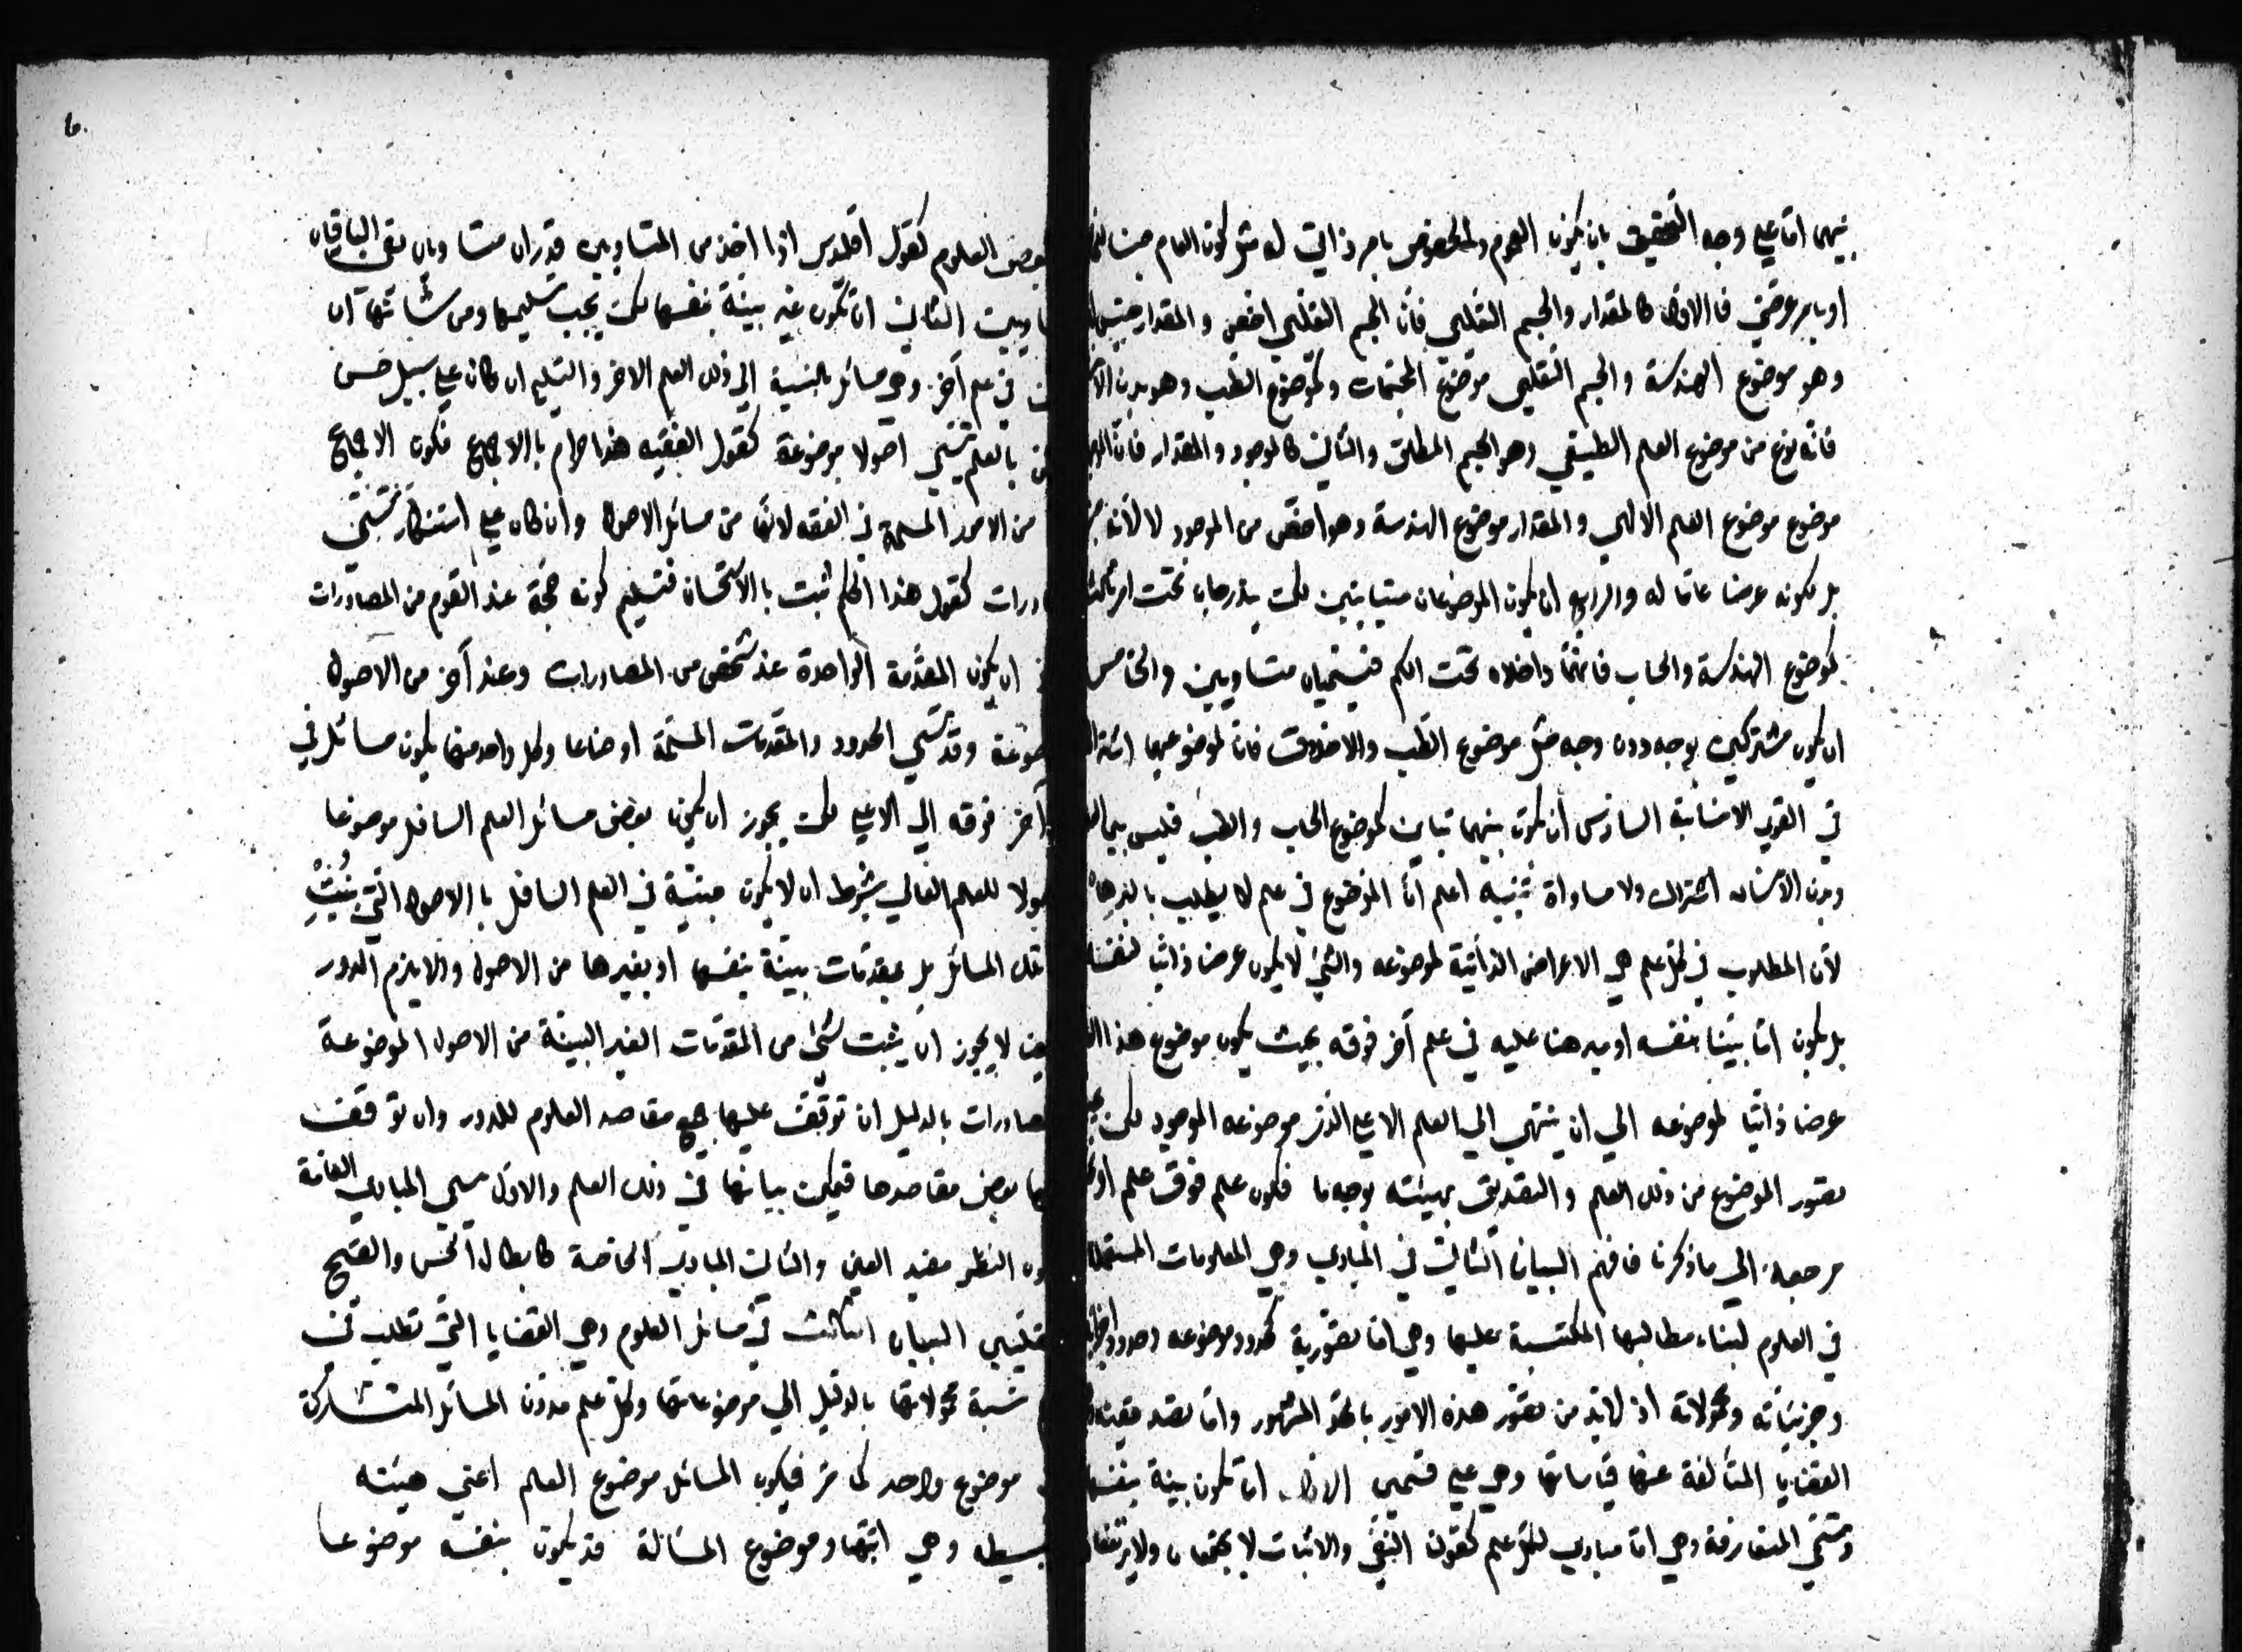 بينهما اما علي وجه التحقيق بان يكون العموم والخصوص بامر ذاتي له مثل كون العام جنسا
او بامر عرضي فالاول كالمقدار والجسم التعليمي فان الجسم التعليمي اخص والمقدار جنس
وهو موضوع الهندسة والجسم التعليمي موضوع المجسمات وكموضوع الطب وهو بدن
فانه نوع من موضوع العلم الطبيعي وهو الجسم المطلق والثاني كالموجود والمقدار فان
موضوع موضوع العلم الالهي والمقدار موضوع الهندسة وهو اخص من الموجود لا لأنه
بل لكونه عرضا عاما له والرابع ان يكون الموضوعان متباينين لكن يندرجان تحت امر
كموضوع الهندسة والحساب فانهما داخلان تحت الكم فيسميان متساويين والخامس
ان يكونا مشتركين بوجه دون وجه مثل موضوع الطب والاخلاق فان لموضوعيهما
في القوي الانسانية السادس أن يكون بينهما تباين كموضوع الحساب والطب فليس بين
وبدن الانسان اشتراك ولا مساواة تنبيه اعلم انّ الموضوع في علم لا يطلب بالبرهان
لأن المطلوب في كل علم هي الاعراض الذاتية لموضوعه والشئ لا يكون عرضا ذاتيا لنفسه
بل يكون اما بيّنا بنفسه او مبرهنا عليه في علم آخر فوقه بحيث يكون موضوع هذا
عرضا ذاتيا لموضوعه الي ان ينتهي الي العلم الاعلي الذي موضوعه الموجود لكن
تصور الموضوع من ذلك العلم والتصديق بهيئته بوجه ما فكون علم فوق علم
مرجعه الي ما ذكرنا فافهم البيان الثاني في المبادي وهي المعلومات المستعملة
في العلوم لبناء مطالبها المكتسبة عليها وهي اما تصورية كحدود موضوعه وحدود اجزائه
وجزئياته ومحمولاته اذ لا بد من تصور هذه الامور بالحد المشهور واما تصديقية
القضايا المتألفة عنها قياساتها وهي علي قسمين الاول اما تكون بينة بنفسها
وتسمي المتعارفة وهي اما مبادي لكل علم كقولنا النفي والاثبات لا يجتمعان ولا يرتفعان
بعض العلوم كقول اقليدس اذا اخذ من المتساويين قدران متساويان بقي الباقيان
متساويين الثاني ان تكون غير بينة بنفسها لكن يجب تسليمها ومن شأنها ان
في علم آخر وهي مسائل بالنسبة الي ذلك العلم الاخر والتسليم ان كان علي سبيل حسن
بالعلم تسمي اصولا موضوعة كقول الفقيه هذا حرام بالاجماع فكون الاجماع
من الامور المسلمة في الفقه لانها من مسائل الاصول وان كان علي استنكار تسمي
مصادرات كقوله هذا الحكم ثبت بالاستحسان فتسليم كونه حجة عند القوم من المصادرات
ان يكون المقدمة الواحدة عند شخص من المصادرات وعند آخر من الاصول
الموضوعة وقد تسمي الحدود والمقدمات المسلمة اوضاعا وكل واحد منها يكون مسائل في
آخر فوقه الي الاعلي لكن يجوز ان يكون بعض مسائل العلم السافل موضوعا
اصولا للعلم العالي بشرط ان لا يكون مبنية في العلم السافل بالاصول التي بُنيتْ
تلك المسائل بل بمقدمات بينة بنفسها او بغيرها من الاصول والا يلزم الدور
لا يجوز ان يثبت شئ من المقدمات الغير البينة من الاصول الموضوعة
والمصادرات بالدليل ان توقف عليها جميع مقاصد العلوم للدور وان توقف
بعض مقاصدها فيمكن بيانها في ذلك العلم والاول يسمي المبادي العامة
النظر مفيد العين والثاني المبادي الخاصة كابطال الحسن والقبح
العقليين البيان الثالث في مسائل العلوم وهي القضايا التي تطلب في
نسبة محمولاتها بالدليل الي موضوعاتها وكل علم مدون المسائل المتشاركة
موضوع واحد كما مر فيكون المسائل موضوع العلم اعني هيئته
البسيطة وهي انيتها وموضوع المسألة قد يكون بنفسه موضوعا